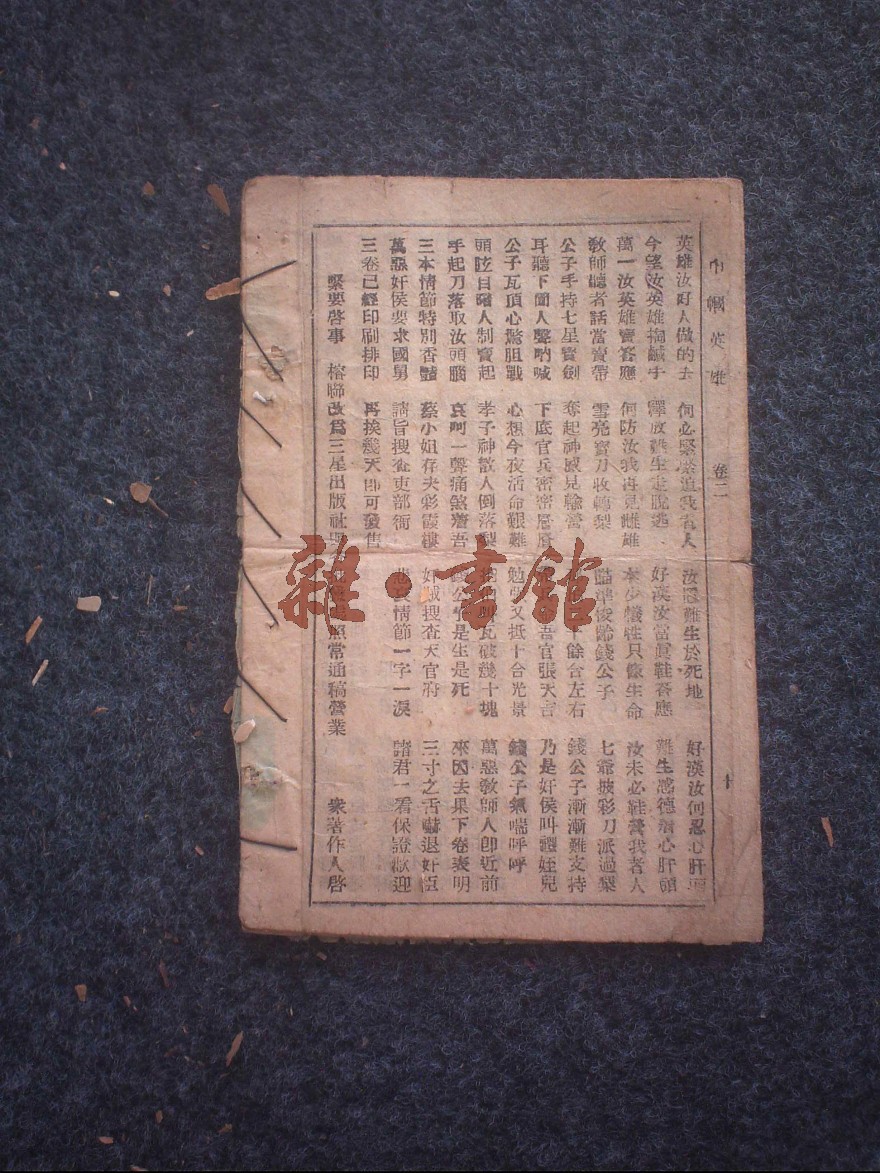 巾幗英雄　卷二　十
英雄汝好人做的去　何必緊緊追我者人　汝隱難生於死地　好漢汝何忍心肝頭
今望汝英雄掏鹹手　釋放難生走脫逃　好漢汝當真鞋答應　難生感德清心肝頭
萬一汝英雄實答應　何防汝我再見雌雄　本少犧牲只條生命　汝未必鞋營我者人
教師聽者話當賣帶　雪亮寶刀收轉梨　錢公子　七爺披彩刀派過梨
公子手持七星寶劍　奪起神威見輸營　餘合左右　錢公子漸漸難支持
耳聽下面人聲吶喊　下底官兵密密層層　吾官張天吉　乃是奸侯叫禮姪兒
公子瓦頂心驚胆戰　心想今夜活命艱難　勉強又抵十合光景　錢公子氣喘呼呼
頭眩目暗人制賣起　孝子神散人倒落梨　瓦破幾十塊　萬惡教師人卽近前
手起刀落取汝頭腦　哀呵一聲痛煞著吾　錢公子是生是死　來因去果下卷表明
三本情節特別香豔　蔡小姐存夬彩霞樓　奸賊搜查天官府　三寸之舌嚇退奸臣
萬惡奸侯要求國舅　請旨搜查吏部衙　悲哀情節一字一淚　諸君一看保證歡迎
三卷已經印刷排印　再挨幾天卽可發售
緊要啓事　榕聯改爲三星出版社　照常通稿營業　衆著作人啓
雜·書館